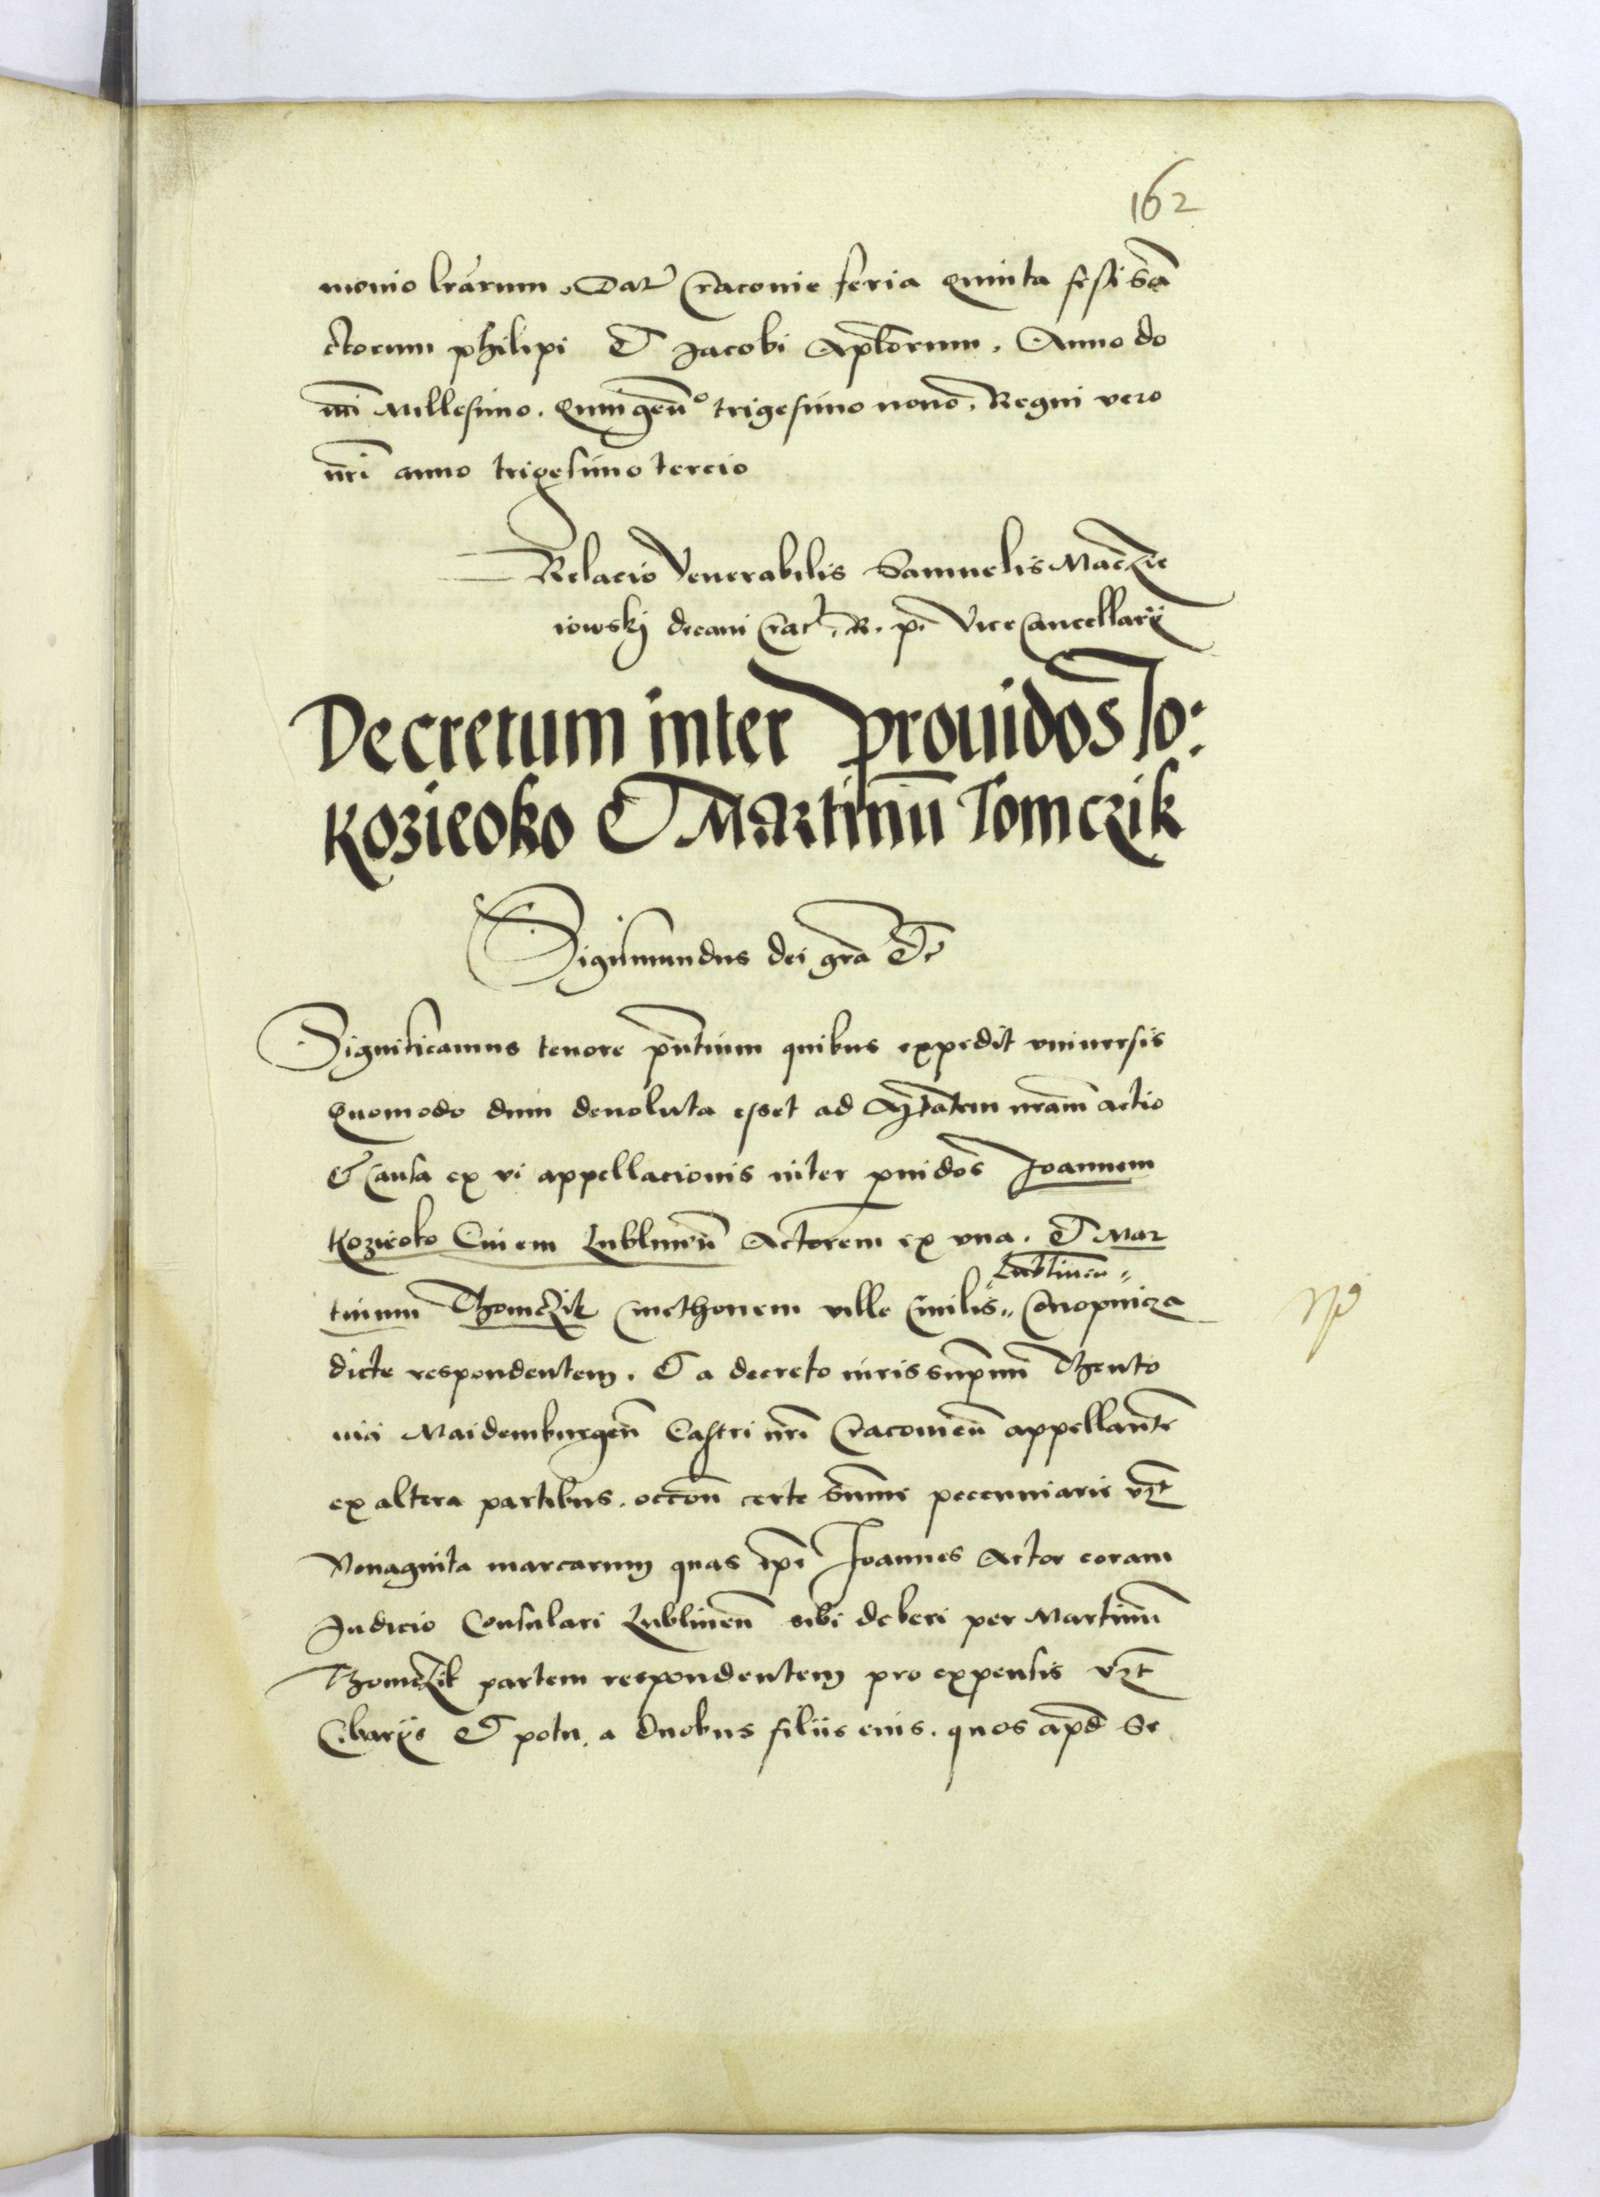 162
monio lrarum. Dat Cracovie feria Quinta festi San
ctorum philipi Et Jacobi Apłorum. Anno do
mi Millesimo. Quingen° trigesimo nono. Regni vero
nri anno trigesimo tercio
Relacio Venerabilis Samuelis Maczie
iowskj decani Crac. R. p. ViceCancellarÿ
Decretum inter Providos Jo:
Kozieoko Et Martinu Tomczik
Sigismundus dei gra Etc
Significamus tenore pntium quibus expedit vniuersis
Quomodo dum deuoluta esset ad Mtatem nram actio
Et Causa ex vi appellacionis inter puidos Joannem
Kozieoko Ciuem Lublinen Actorem ex vna. Et Mar
Lublinen
tinum Thomczik Cmethonem ville Ciuilis Conopnicza
dicte respondentem. Et a decreto iuris supmi Theuto
nici Maidemburgen Castri nri Cracouien appellante
ex altera partibus. occon certe summe pecuniarie vzt
Nonaginta marcarum quas ipe Joannes Actor coram
Judicio Consulari Lublinen sibi deberi per Martinu
Thomczik partem respondentem pro expensis vzt
Cibarÿs Et potu. a duobus filiis eius. quos apd Se